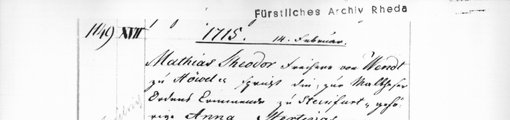 Fürstliches Archiv Rheda
1149 XVII 1715. 14. Februar.
Mathias Theodor Freiherr von Wendt
zu Möwel schenkt die, zur Maltheser
Ordens Commende zu Steinfurt, gehö-
rige Anna